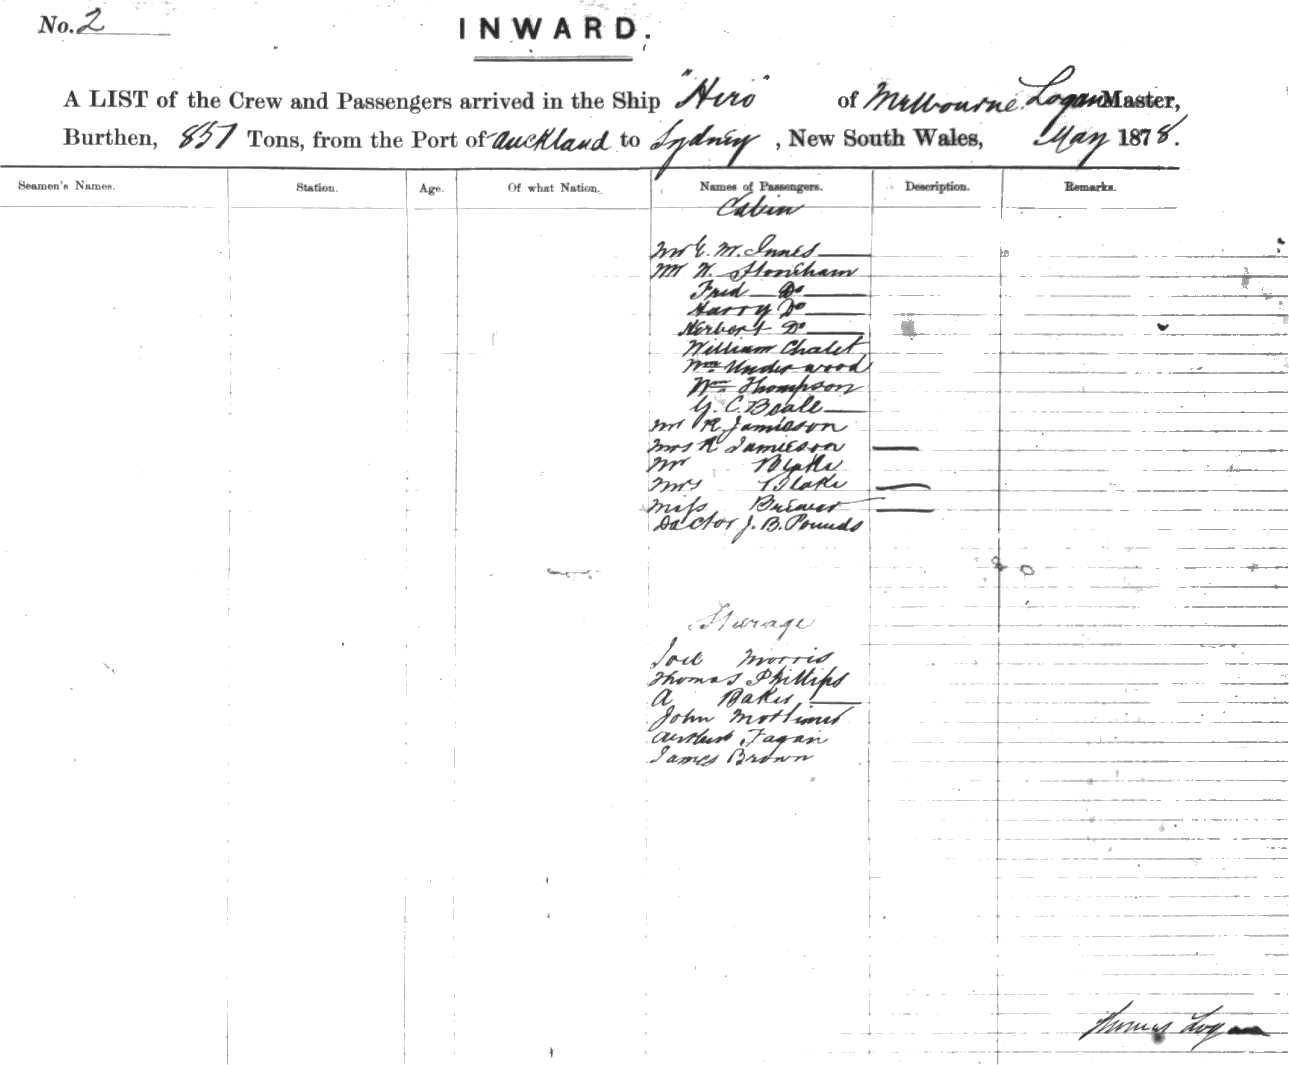 No. 2
INWARD.
A LIST of the Crew and Passengers arrived in the Ship "Hero" of Melbourne Logan Master,
Burthen, 857 Tons, from the Port of Auckland to Sydney, New South Wales, May 1878.
Seamen's Names. Station. Age. Of what Nation. Names of Passengers. Description. Remarks.
Cabin
Mr E. M. Innes
Mr W. Stoneham
Fred Do
Harry Do
Herbert Do
William Chalet
Wm Underwood
Wm Thompson
G. C. Beale
Mr R Jamieson
Mrs R Jamieson
Mr Blake
Mrs Blake
Miss Brewer
Doctor J. B. Pounds
Steerage
Joel Morris
Thomas Phillips
A Baker
John Mortimer
Fagan
James Brown
Thomas Logan